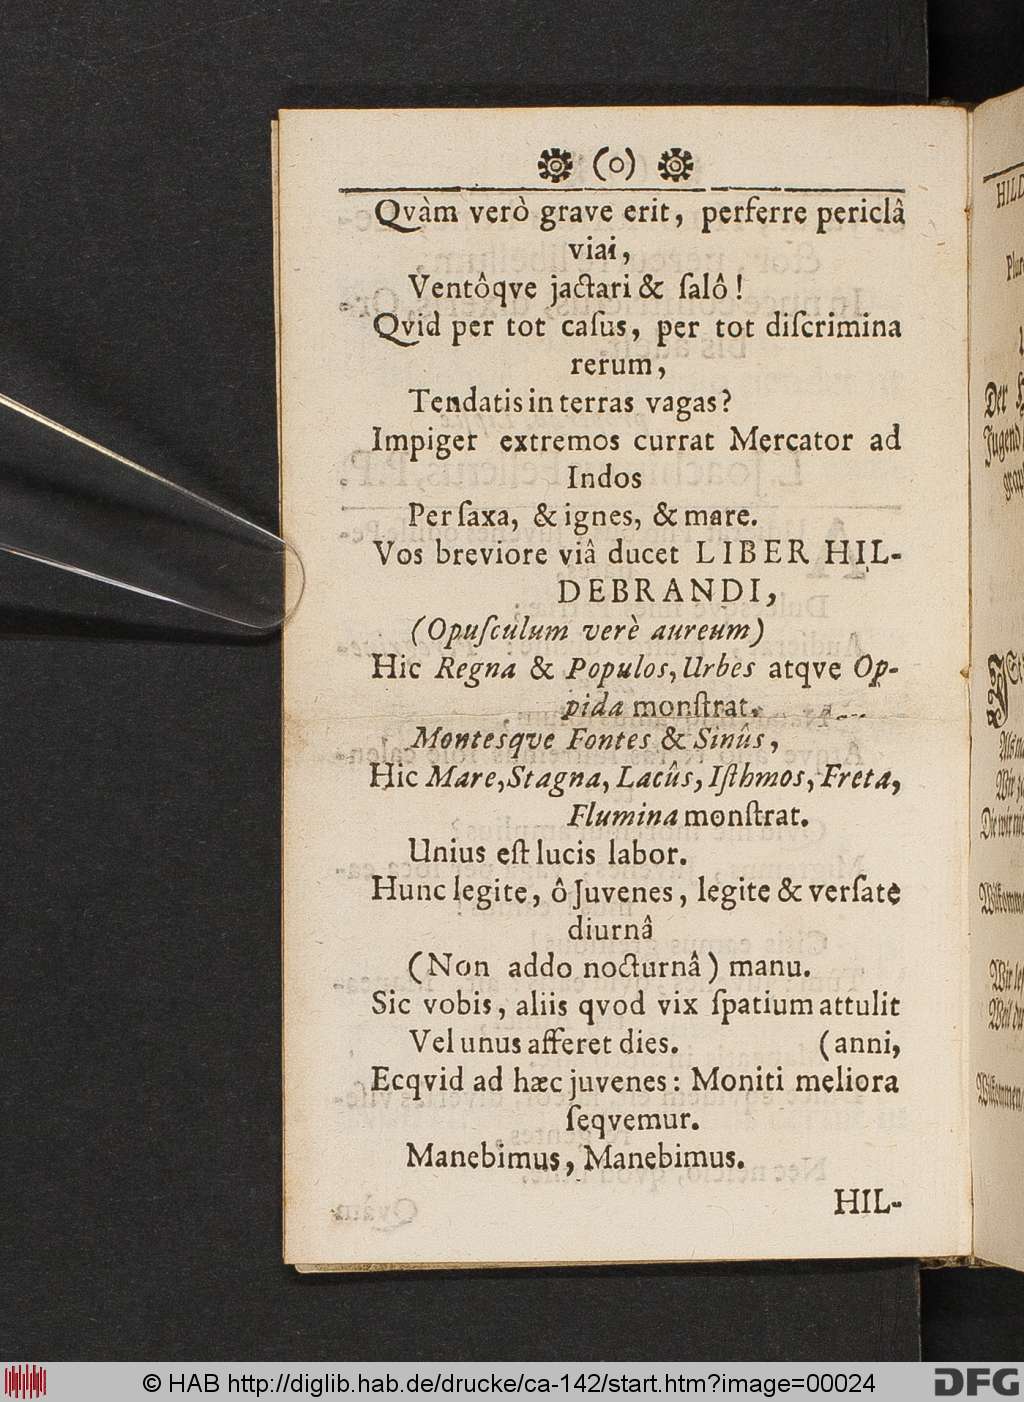 (o)
Qvàm verò grave erit, perferre periclâ
viai,
Ventôqve jactari & ſalô!
Qvid per tot caſus, per tot diſcrimina
rerum,
Tendatis in terras vagas?
Impiger extremos currat Mercator ad
Indos
Per ſaxa, & ignes, & mare.
Vos breviore viâ ducet LIBER HIL-
DEBRANDI,
(Opuſculum verè aureum)
Hic Regna & Populos, Urbes atqve Op-
pida monſtrat,
Montesqve Fontes & Sinûs,
Hic Mare, Stagna, Lacûs, Iſthmos, Freta,
Flumina monſtrat.
Unius eſt lucis labor.
Hunc legite, ô Juvenes, legite & verſate
diurnâ
(Non addo nocturnâ) manu.
Sic vobis, aliis qvod vix ſpatium attulit
Vel unus afferet dies. (anni,
Ecqvid ad hæc juvenes: Moniti meliora
ſeqvemur.
Manebimus, Manebimus.
HIL-
HILD
Der
Jugend
Wir
© HAB http://diglib.hab.de/drucke/ca-142/start.htm?image=00024
DFG